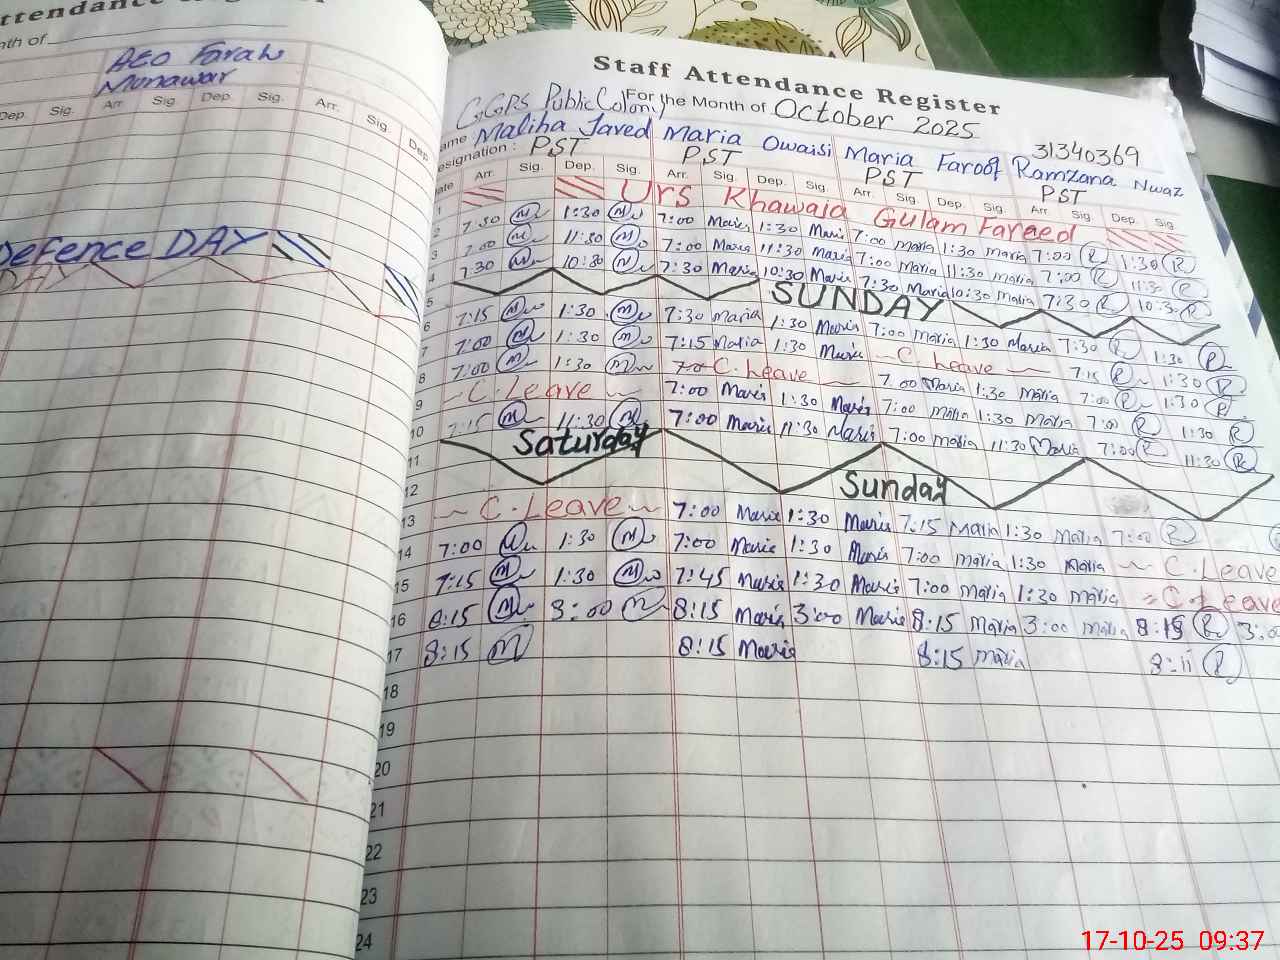 Attendance Register
nth of
AEO Farah
Munawar
Dep. Sig. Arr. Sig. Dep. Sig. Arr. Sig. Dep
Defence DAY
DAY
Staff Attendance Register
G.G.P.S Public Colony For the Month of October 2025
31340369
ame Maliha Javed Maria Owaisi Maria Farooq Ramzana Nwaz
esignation : PST PST PST PST
ate Arr. Sig. Dep. Sig. Arr. Sig. Dep. Sig. Arr. Sig. Dep. Sig. Arr. Sig. Dep. Sig.
1 Urs Khawaja Gulam Fareed
2 7:30 M 1:30 M 7:00 Maria 1:30 Maria 7:00 maria 1:30 maria 7:00 R 1:30 R
3 7:00 M 11:30 M 7:00 Maria 11:30 Maria 7:00 Maria 11:30 maria 7:00 R 11:30 R
4 7:30 M 10:30 M 7:30 Maria 10:30 Maria 7:30 Maria 10:30 maria 7:30 R 10:30 R
5 SUNDAY
6 7:15 M 1:30 M 7:30 maria 1:30 Maria 7:00 maria 1:30 Maria 7:30 R 1:30 R
7 7:00 M 1:30 M 7:15 Maria 1:30 Maria C. Leave 7:15 R 1:30 R
8 7:00 M 1:30 M C. Leave 7:00 Maria 1:30 maria 7:00 R 1:30 R
9 C. Leave 7:00 Maria 1:30 Maria 7:00 maria 1:30 maria 7:00 R 1:30 R
10 7:15 M 11:30 M 7:00 Maria 11:30 Maria 7:00 maria 11:30 Maria 7:00 R 11:30 R
11 Saturday
12 Sunday
13 C. Leave 7:00 Maria 1:30 Maria 7:15 Maria 1:30 Maria 7:00 R
14 7:00 M 1:30 M 7:00 Maria 1:30 Maria 7:00 maria 1:30 Maria C. Leave
15 7:15 M 1:30 M 7:45 Maria 1:30 Maria 7:00 maria 1:30 maria C. Leave
16 8:15 M 3:00 M 8:15 Maria 3:00 Maria 8:15 Maria 3:00 maria 8:15 R 3:0
17 8:15 M 8:15 Maria 8:15 maria 8:11 R
18
19
20
21
22
23
24
17-10-25 09:37